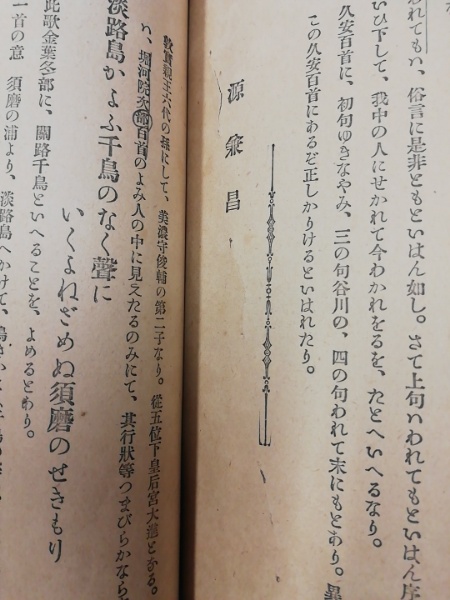 われてもハ、俗言に是非ともといはん如し。さて上句ハわれてもといはん序
いひ下して、我中の人にせかれて今わかれをるを、たとへいへるなり。
久安百首に、初句ゆきなやみ、三の句谷川の、四の句われて末にもとあり。
この久安百首にあるぞ正しかりけるといはれたり。
源兼昌
敦實親王六代の孫にして、美濃守俊輔の第二子なり。從五位下皇后宮大進となる。
堀河院次郎百首のよみ人の中に見えたるのみにて、其行狀等つまびらかなら
淡路島かよふ千鳥のなく聲に
いくよねざめぬ須磨のせきもり
此歌金葉冬部に、關路千鳥といへることを、よめるとあり。
一首の意 須磨の浦より、淡路島へかけて、